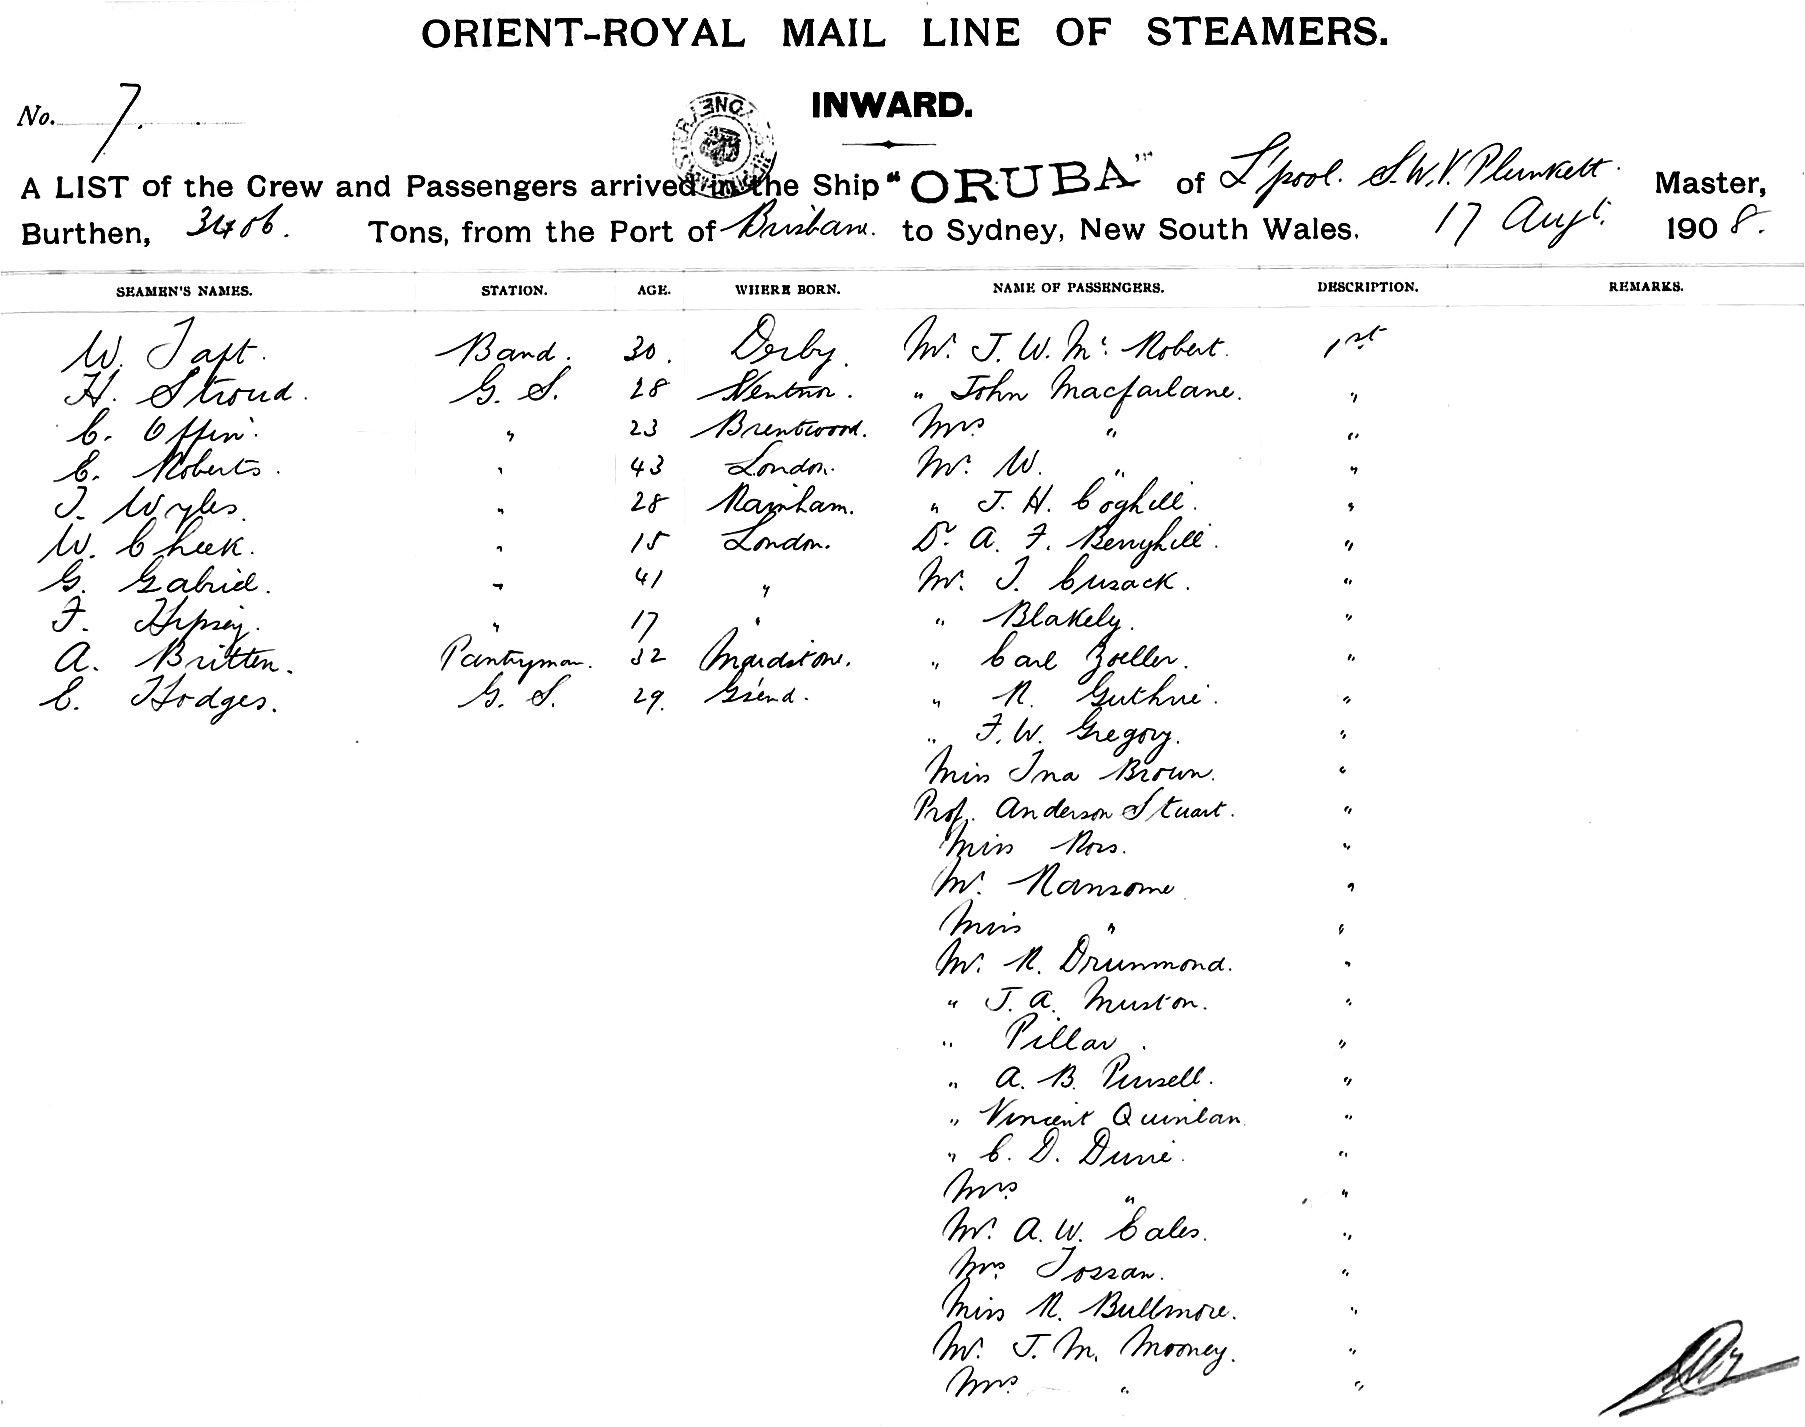 ORIENT-ROYAL MAIL LINE OF STEAMERS.
No. 7.
INWARD.
A LIST of the Crew and Passengers arrived in the Ship "ORUBA" of L'pool. S.W.V. Plunkett. Master,
Burthen, 3406. Tons, from the Port of Brisbane. to Sydney, New South Wales. 17 Augt. 1908.
SEAMEN'S NAMES. STATION. AGE. WHERE BORN. NAME OF PASSENGERS. DESCRIPTION. REMARKS.
W. Taft. Band. 30. Derby. Mr. J. W. Mc. Robert. 1st
H. Stroud. G. S. 28 Ventnor. " John Macfarlane. "
C. Offin. " 23 Brentwood. Mrs " "
E. Roberts. " 43 London. Mr. W. " "
J. Wyles. " 28 Rainham. " J. H. Coghill. "
W. Cheek. " 15 London. Dr. A. F. Berryhill. "
G. Gabriel. " 41 " Mr. J. Cusack. "
F. " 17 " " Blakely. "
A. Britten. Pantryman. 32 Maidstone. " Carl Zoeller. "
E. Hodges. G. S. 29. G'send. " R. Guthrie. "
" F. W. Gregory. "
Miss Ina Brown. "
Prof. Anderson Stuart. "
Miss Ross. "
Mr. Ransome "
Miss " "
Mr. R. Drummond. "
" J. A. Muston. "
" Pillar. "
" A. B. Pursell. "
" Vincent Quinlan "
" C. D. "
Mrs " "
Mr. A. W. Eales. "
Mrs. "
Miss R. Bullmore. "
Mr. J. M. Mooney. "
Mrs " "